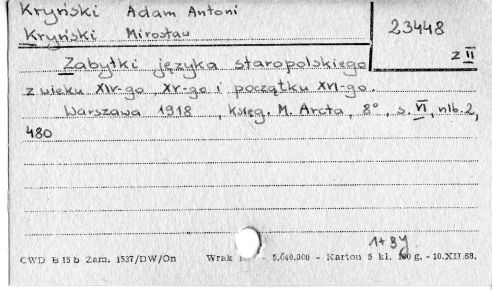 Kryński Adam Antoni
Kryński Mirosław
23448
z II
Zabytki języka staropolskiego
z wieku XIV-go XV-go i początku XVI-go.
Warszawa 1918, księg. M. Arcta, 8°, s. VI, nlb. 2,
480
1+3y
CWD B 15 b Zam. 1537/DW/On Wrak - 5.000.000 - Karton 5 kl. g. - 10.XII.68.